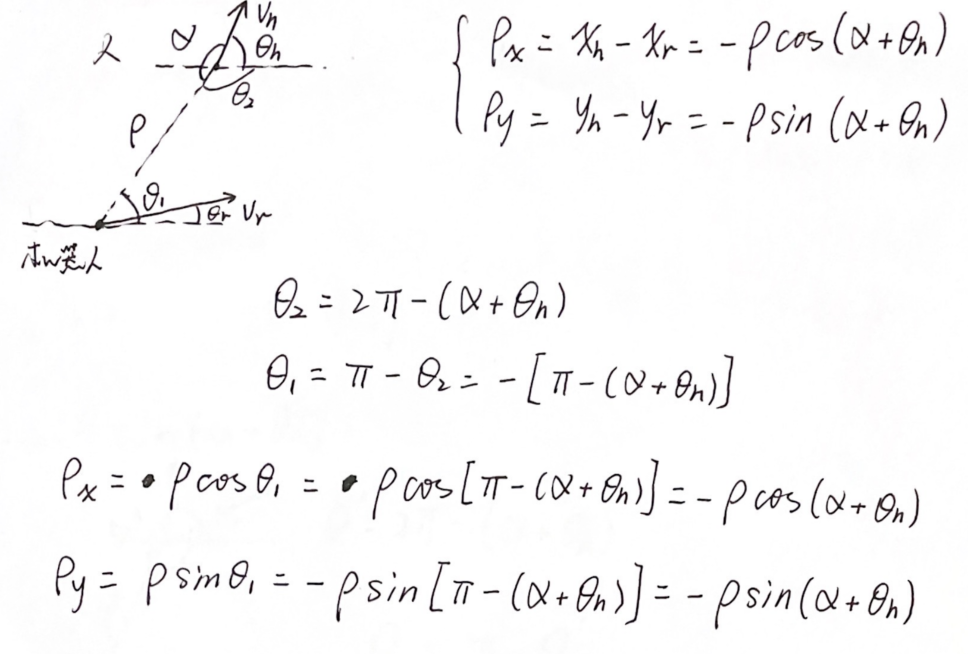 人 α Vₕ θₕ
θ₂
ρ
θ₁ θᵣ Vᵣ
机器人
{ ρx = xₕ - xᵣ = -ρcos(α+θₕ)
ρy = yₕ - yᵣ = -ρsin(α+θₕ)
θ₂ = 2π-(α+θₕ)
θ₁ = π - θ₂ = -[π-(α+θₕ)]
ρx = ρcosθ₁ = ρcos[π-(α+θₕ)] = -ρcos(α+θₕ)
ρy = ρsinθ₁ = -ρsin[π-(α+θₕ)] = -ρsin(α+θₕ)